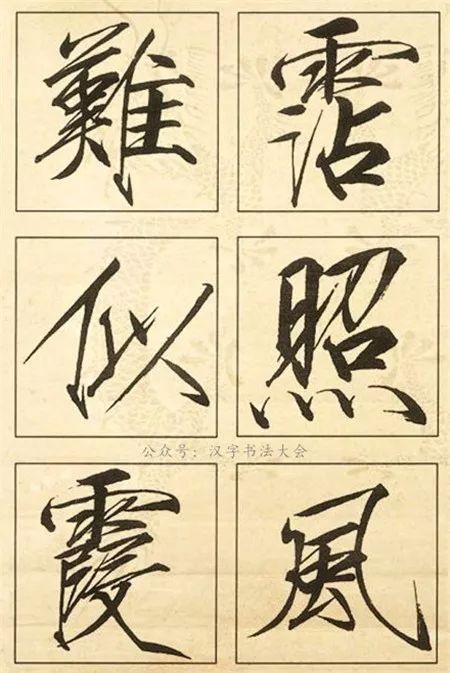 霑照風
難似霞
公众号:汉字书法大会